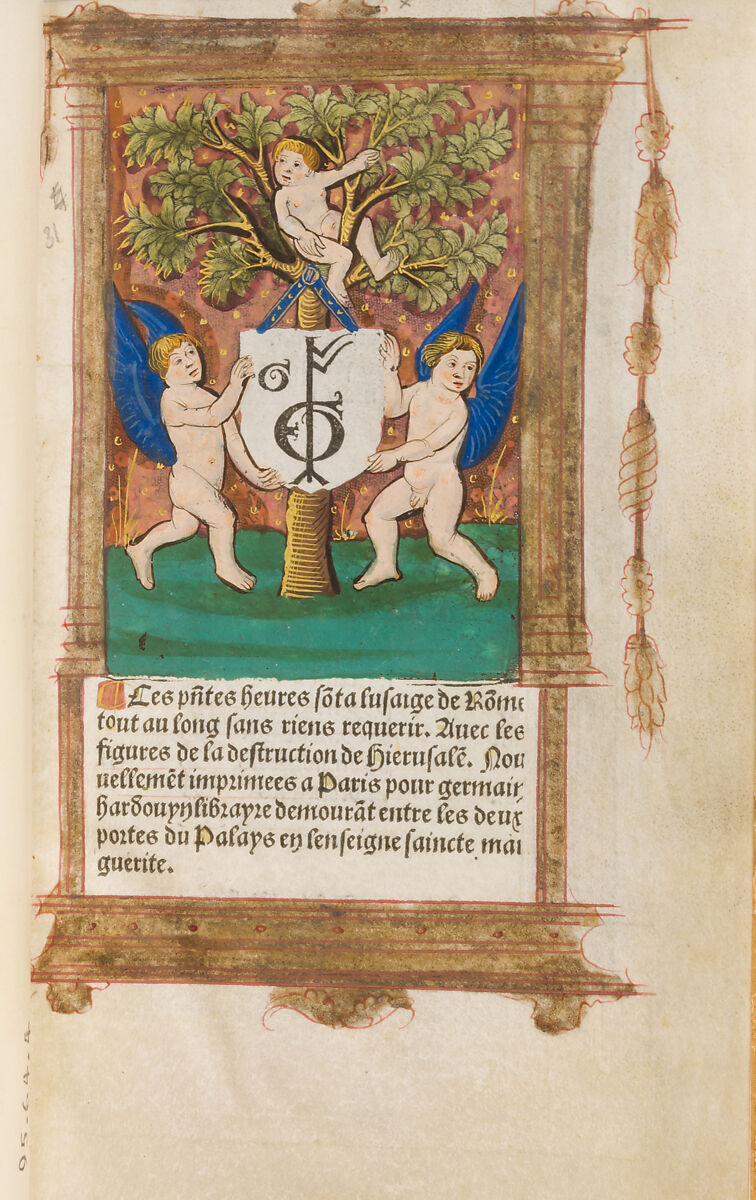 Ces pñtes heures sõt a lusaige de Rõme
tout au long sans riens requerir. Auec les
figures de la destruction de Hierusalẽ. Nou
uellemẽt imprimees a Paris pour germain
hardouyn librayre demourãt entre les deux
portes du Palays en lenseigne saincte mar
guerite.
31
95.64.4